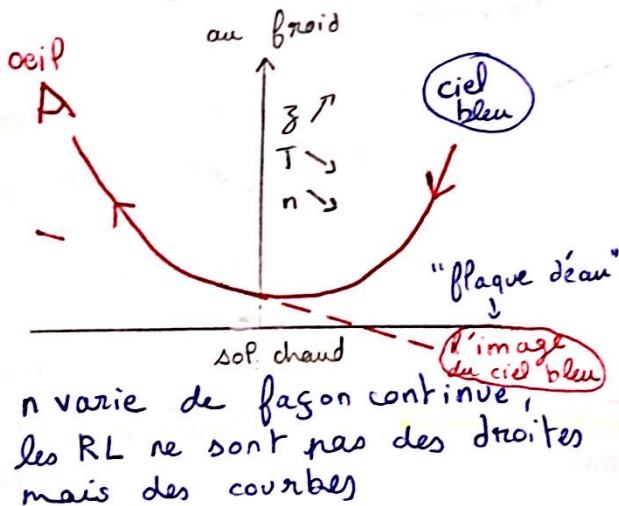 au froid
oeil
ciel
bleu
z ↗
T ↘
n ↘
"flaque d'eau"
↓
sol chaud
l'image
du ciel bleu
n varie de façon continue,
les RL ne sont pas des droites
mais des courbes